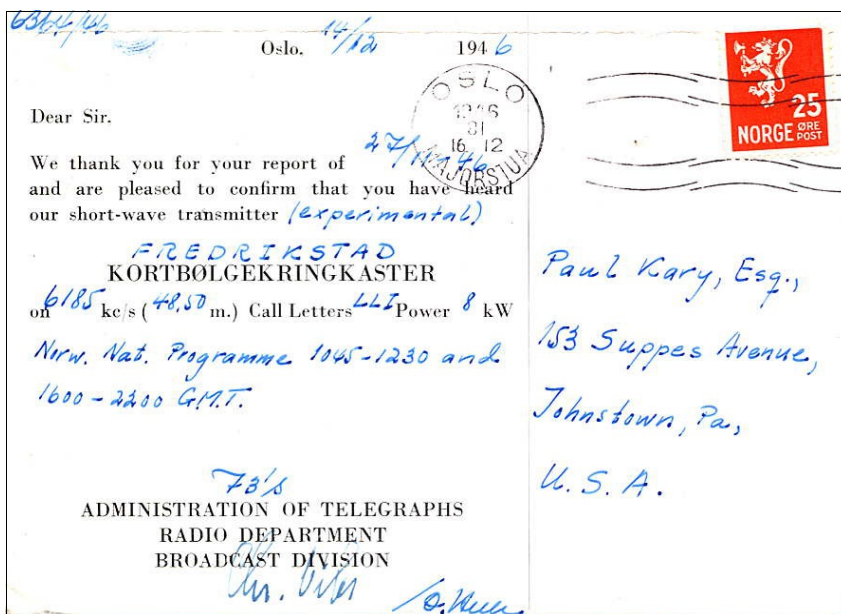 6364/46
Oslo. 14/12 1946
Dear Sir.
We thank you for your report of 27/11 46
and are pleased to confirm that you have heard
our short-wave transmitter (experimental)
FREDRIKSTAD
KORTBØLGEKRINGKASTER
on 6185 kc/s (48,50 m.) Call Letters LLI Power 8 kW
Norw. Nat. Programme 1045-1230 and
1600-2200 G.M.T.
73's
ADMINISTRATION OF TELEGRAPHS
RADIO DEPARTMENT
BROADCAST DIVISION
OSLO
1946
16 12
MAJORSTUA
25
NORGE ØRE POST
Paul Kary, Esq.,
153 Suppes Avenue,
Johnstown, Pa,
U. S. A.